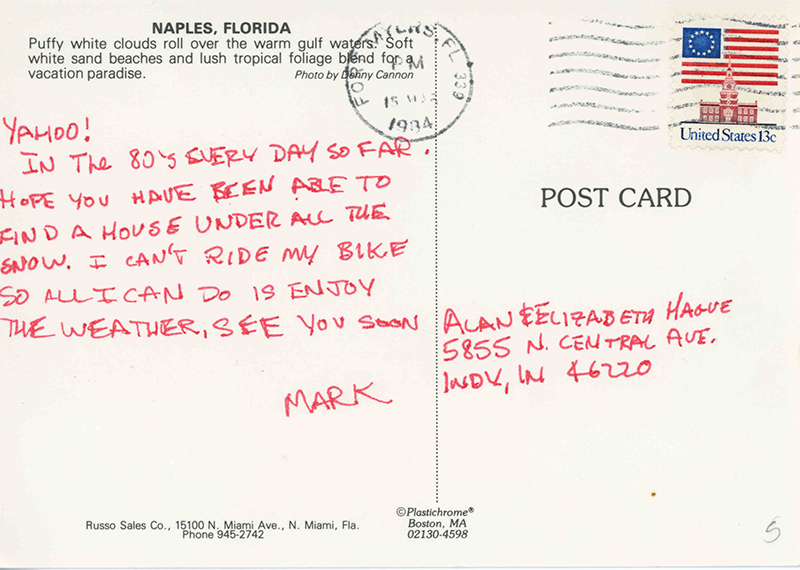 NAPLES, FLORIDA
Puffy white clouds roll over the warm gulf waters. Soft
white sand beaches and lush tropical foliage blend for a
vacation paradise.
Photo by Denny Cannon
FORT MYERS, FL 339
PM
15
1984
United States 13c
POST CARD
YAHOO!
IN THE 80'S EVERY DAY SO FAR.
HOPE YOU HAVE BEEN ABLE TO
FIND A HOUSE UNDER ALL THE
SNOW. I CAN'T RIDE MY BIKE
SO ALL I CAN DO IS ENJOY
THE WEATHER, SEE YOU SOON
MARK
ALAN & ELIZABETH HAGUE
5855 N. CENTRAL AVE.
INDY, IN 46220
Russo Sales Co., 15100 N. Miami Ave., N. Miami, Fla.
Phone 945-2742
©Plastichrome®
Boston, MA
02130-4598
5